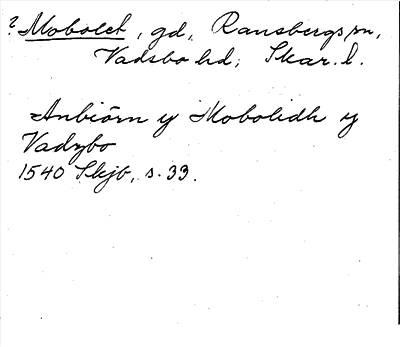 ? Mobolet, gd, Ransbergs sn,
Vadsbo hd, Skar. l.
Anbiörn y Mobolidh y
Vadzbo
1540 Skjb, s. 33.